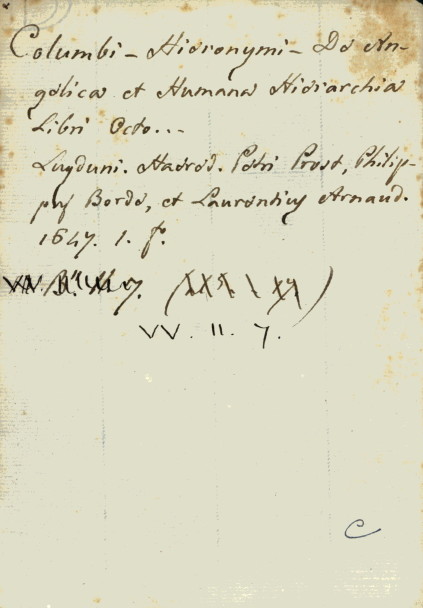 Columbi - Hieronymi - De An-
gelica et Humana Hierarchia
Libri Octo...
Lugduni. Haered. Petri Prost, Philip-
pus Borde, et Laurentius Arnaud.
1647. 1. fo.
7.
VV. II. 7.
C